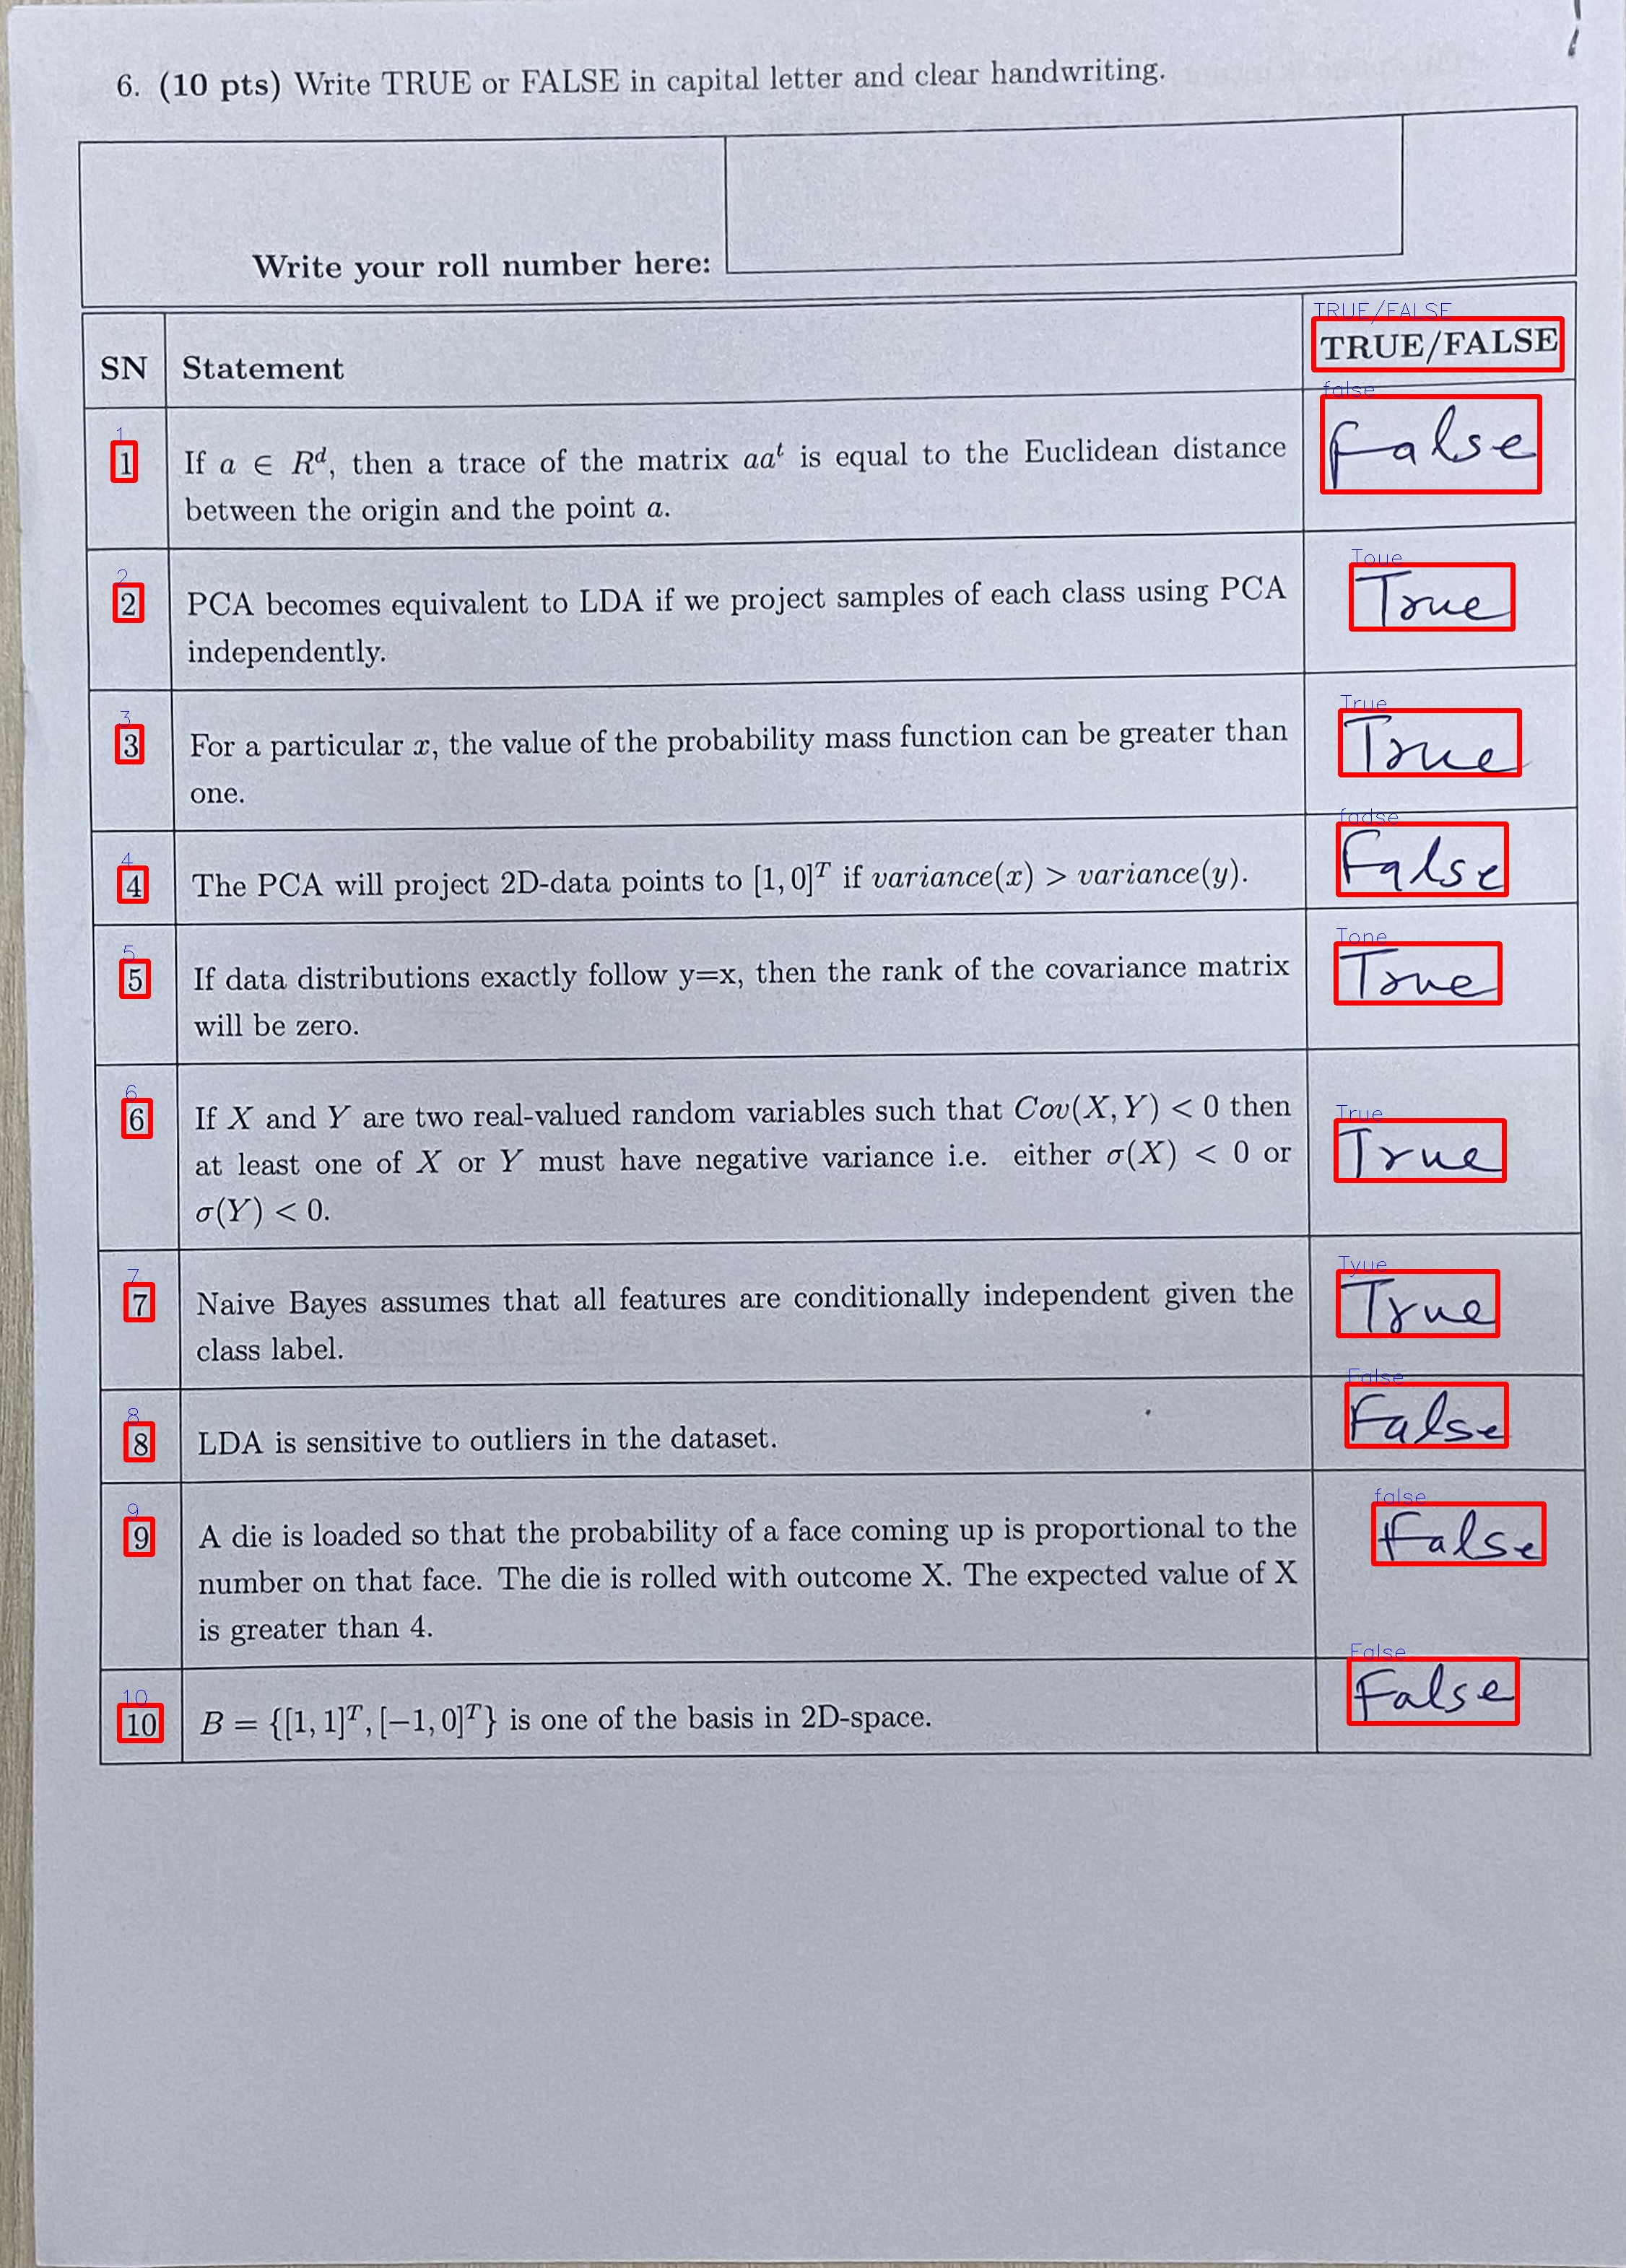 6. (10 pts) Write TRUE or FALSE in capital letter and clear handwriting.
Write your roll number here:
TRUE/FALSE
SN Statement TRUE/FALSE
false
1
1 If a ∈ R^d, then a trace of the matrix aa^t is equal to the Euclidean distance False
between the origin and the point a.
Toue
2
2 PCA becomes equivalent to LDA if we project samples of each class using PCA True
independently.
True
3
3 For a particular x, the value of the probability mass function can be greater than True
one.
fadse
4
4 The PCA will project 2D-data points to [1, 0]^T if variance(x) > variance(y). False
Tone
5
5 If data distributions exactly follow y=x, then the rank of the covariance matrix True
will be zero.
6
6 If X and Y are two real-valued random variables such that Cov(X, Y) < 0 then
True
at least one of X or Y must have negative variance i.e. either σ(X) < 0 or True
σ(Y) < 0.
Tyue
7
7 Naive Bayes assumes that all features are conditionally independent given the True
class label.
False
8
8 LDA is sensitive to outliers in the dataset. False
false
9
9 A die is loaded so that the probability of a face coming up is proportional to the False
number on that face. The die is rolled with outcome X. The expected value of X
is greater than 4.
False
10
10 B = {[1, 1]^T, [−1, 0]^T} is one of the basis in 2D-space. False